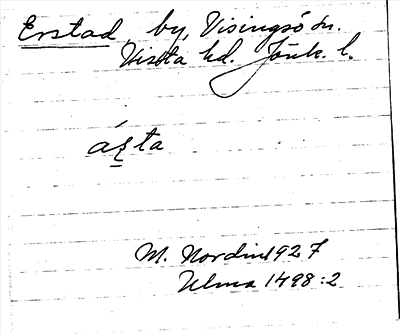 Erstad, by, Visingsö sn.
Vista hd. Jönk. l.
áṣta
M. Nordin 1927
Ulma 1498:2